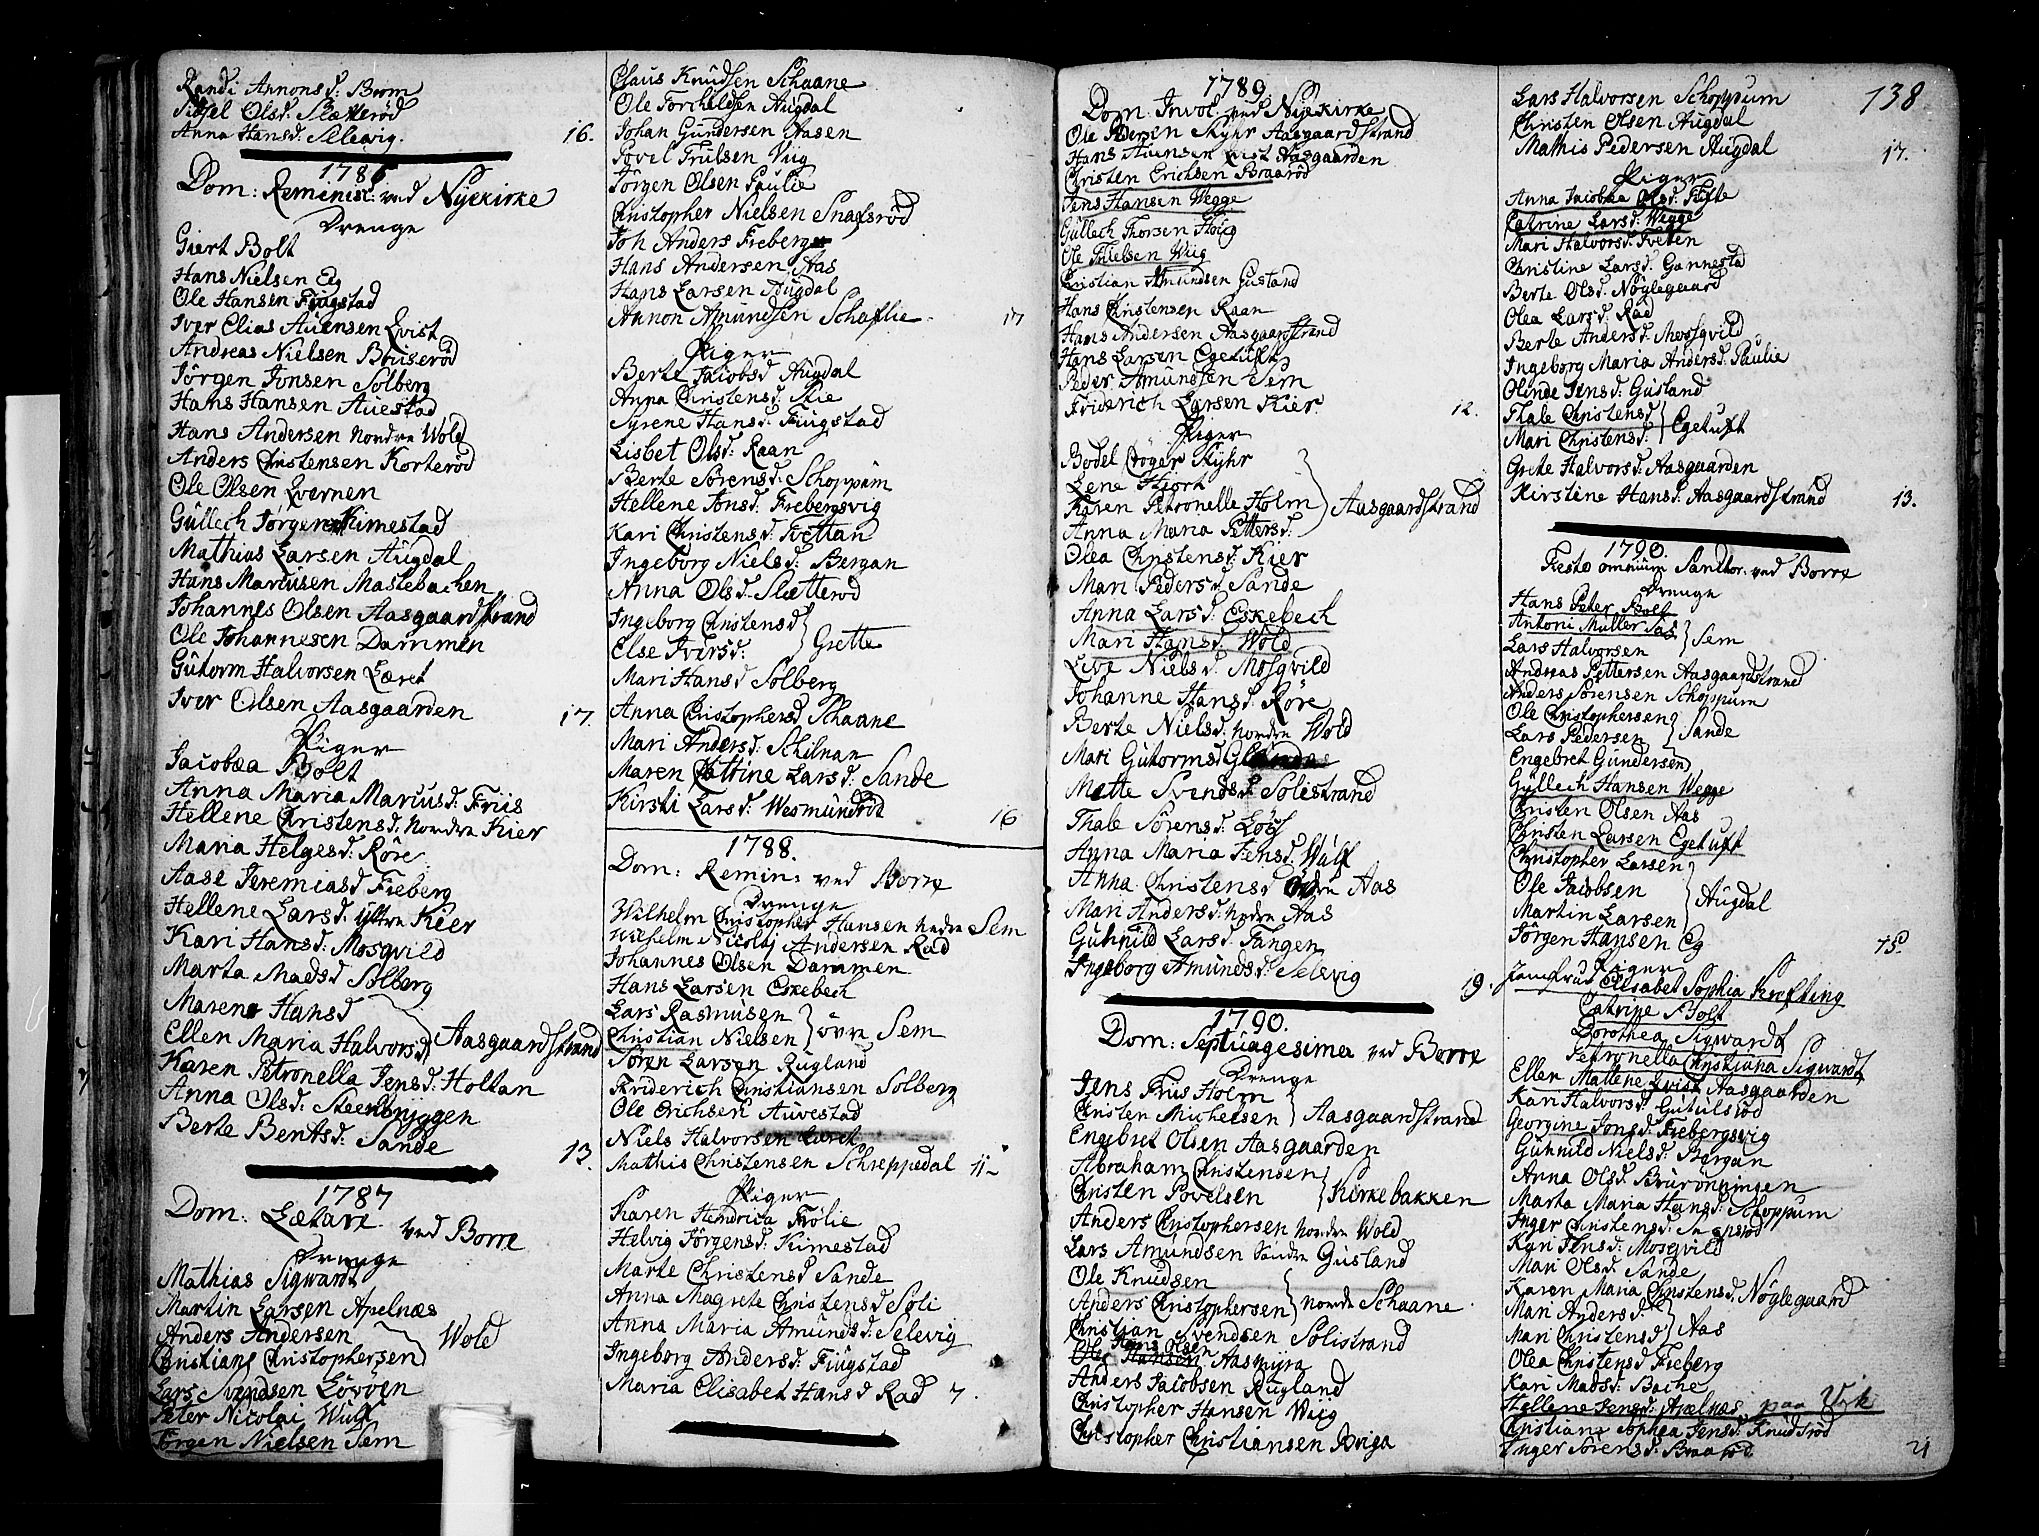 Randi Annons d: Brom
Sidsel Ols d: Slætterød
Anna Hans d: Selevig. 16.
1786
Dom: Reminisc: ved Nÿekirke
Drenge
Giert Bolt
Hans Nielsen Eg
Ole Hansen Fiugstad
Iver Elias Auensen Qvist
Andreas Nielsen Bruserød
Jörgen Jonsen Solberg
Hans Hansen Auestad
Hans Andersen Nordre Wold
Anders Christensen Korterød
Ole Olsen Qvernen
Gullech Jörgen Kimestad
Mathias Larsen Augdal
Hans Marcusen Mastebachen
Johannes Olsen Aasgaardstrand
Ole Johannesen Dammen
Gutorm Halvorsen Læret
Iver Olsen Aasgaarden 17.
Piger
Jacobæa Bolt
Anna Maria Marcus d: Friis
Hellene Christens d: Nordre Kier
Maria Helges d: Röre
Aase Jeremias d: Freberg
Hellene Lars d: ÿttre Kier
Kari Hans d: Mosqvild
Marta Mads d: Solberg
Maren Hans d
Ellen Maria Halvors d } Aasgaardstrand
Karen Petronella Jens d: Holtan
Anna Ols d: Steenbrÿggen
Berte Bents d: Sande 13.
1787
Dom: Lætare ved Borre
Drenge
Mathias Sigwardt
Martin Larsen Apelnæs
Anders Andersen
Christian Christophersen } Wold
Lars Svendsen Lövöen
Peter Nicolai Wulf
Jörgen Nielsen Sem
Claus Knudsen Schaane
Ole Torchildsen Augdal
Johan Gundersen Aasen
Povel Trulsen Viig
Jörgen Olsen Paulie
Christopher Nielsen Snapsrød
Joh Anders Freberg
Hans Andersen Aas
Hans Larsen Augdal
Annon Amundsen Schaflie 17
Piger
Berte Jacobs d Augdal
Anna Christens d: Skie
Syrene Hans d: Fiugstad
Lisbet Ols d: Raan
Berte Sörens d: Schoppum
Hellene Jons d: Frebergsvig
Kari Christens d: Tvettan
Ingeborg Niels d: Bergan
Anna Ols d: Slætterød
Ingeborg Christens d
Else Ivers d: } Grette
Mari Hans d Solberg
Anna Christophers d Schaane
Mari Anders d: Schilnan
Maren Cattrine Lars d: Sande
Kirsti Lars d: Wesmundrød 16
1788.
Dom: Remin: ved Borre
Drenge
Wilhelm Christopher Hansen nedre Sem
Wilhelm Nicolaj Andersen Rad
Johannes Olsen Dammen
Hans Larsen Eskebech
Lars Rasmusen
Christian Nielsen } övre Sem
Sören Larsen Rugland
Friderich Christiansen Solberg
Ole Erichsen Auvestad
Niels Halvorsen Læret
Mathis Christensen Schreppedal 11
Piger
Karen Hendrica Frölie
Helvig Jörgens d: Kimestad
Marte Christens d Sande
Anna Magrete Christens d Soli
Anna Maria Amunds d: Selevig
Ingeborg Anders d: Fiugstad
Maria Elisabet Hans d Rad 7.
1789.
Dom. Invoc. ved Nÿekirke
Ole Pedersen Mÿhr Aasgaardstrand
Hans Auensen Qvist Aasgaarden
Christen Erichsen Braarød
Jens Hansen Wegge
Gullech Thorsen Hoig
Ole Thielsen Wiig
Christian Amundsen Gustand
Hans Christensen Raan
Hans Andersen Aasgaardstrand
Hans Larsen Egetuft
Peder Amundsen Sem
Friderich Larsen Kier. 12.
Piger
Bodel Cröger Mÿhr
Lene Hiort
Karen Petronelle Holm
Anna Maria Petters d: } Aasgaardstrand
Olea Christens d: Kier
Mari Peders d: Sande
Anna Lars d: Eskebech
Mari Hans d: Wold
Live Niels d: Mosqvild
Johanne Hans d: Röre
Berte Niels d: Nordre Wold
Mari Gutorms d
Mette Svends d: Solistrand
Thale Sörens d: Löes
Anna Maria Jens d: Wulf
Anna Christens d Aas
Mari Anders d: nedre Aas
Gunnild Lars d: Tangen
Ingeborg Amunds d: Selevig 19.
1790.
Dom: Septuagesima ved Borre
Drenge
Jens Friis Holm
Christen Michelsen } Aasgaardstrand
Engebret Olsen Aasgaarden
Abraham Christensen
Christen Povelsen } Kirkebakken
Anders Christophersen Nordre Wold
Lars Amundsen Söndre Gusland
Ole Knudsen
Anders Christophersen } nordre Schaane
Christian Svendsen Solistrand
Hans Olsen
Ole Hansen Aasmÿra
Anders Jacobsen Rugland
Christopher Hansen Wiig
Christopher Christiansen Briga
138
Lars Halvorsen Schoppum
Christen Olsen Augdal
Mathis Pedersen Augdal 17.
Piger
Anna Jacobæa Ols d: Fæste
Catrine Lars d: Wegge
Mari Halvors d: Tveten
Christine Lars d: Gannestad
Berte Ols d: Nöglegaard
Olea Lars d: Rad
Berte Anders d: Mosqvild
Ingeborg Maria Anders d: Paulie
Olinde Jens d: Gusland
Thale Christens d
Mari Christens d: } Egetuft
Grete Halvors d: Aasgaarden
Kirstine Hans d: Aasgaardstrand 13.
1790.
Festo omnium Sanctor: ved Borre
Drenge
Hans Peter Bolt
Antoni Muller Sas
Lars Halvorsen } Sem
Andreas Pettersen Aasgaardstrand
Anders Sörensen Schoppum
Ole Christophersen
Lars Pedersen } Sande
Engebret Gundersen
Gÿllech Hansen Wegge
Christen Olsen Aas
Christen Larsen Egetuft
Christopher Larsen
Ole Jacobsen
Martin Larsen } Augdal
Jörgen Hansen Eg 15.
Piger
Jomfrue Elisabet Sophia Krefting
Catrine Bolt
Dorothea Sigwardt
Petronella Christiana Sigwardt
Ellen Mallene Qvist Aasgaarden
Kari Halvors d Gutulsrød
Georgine Jons d: Frebergsvig
Gunnild Niels d: Bergan
Anna Ols d. Brurönningen
Marta Maria Hans d: Schoppum
Inger Christens d: Snapsrød
Kari Jens d: Mosqvild
Mari Ols d: Sande
Karen Maria Christens d: Nöglegaard
Mari Anders d:
Mari Christens d } Aas
Olea Christens d Freberg
Kari Mads d: Bache
Hellene Jens d: Apelnæs paa Vik
Christiana Sophea Jens d: Knudsrød
Inger Sörens d: Braarød 21